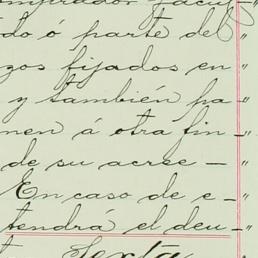 mprador facul-
do ó parte de
zos fijados en
y también pa
nen á otra fin
de su acree -
En caso de e-
tendrá el deu-
Sexta